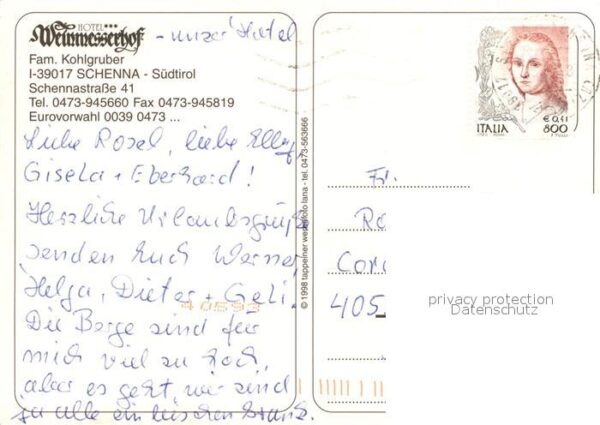 HOTEL***
Weinmesserhof - unser Hotel
Fam. Kohlgruber
I-39017 SCHENNA - Südtirol
Schennastraße 41
Tel. 0473-945660 Fax 0473-945819
Eurovorwahl 0039 0473 ...
Liebe Rosel, liebe Elly,
Gisela + Eberhard!
Herzliche Urlaubsgrüße
senden Euch Werner,
Helga, Dieter + Geli.
Die Berge sind für
mich viel zu hoch,
aber es geht, wir sind
ja alle ein bischen krank.
40593
© 1998 tappeiner werbefoto lana - tel. 0473-563666
ITALIA
€ 0,41
800
Fr.
Ro
Cor
405
privacy protection
Datenschutz